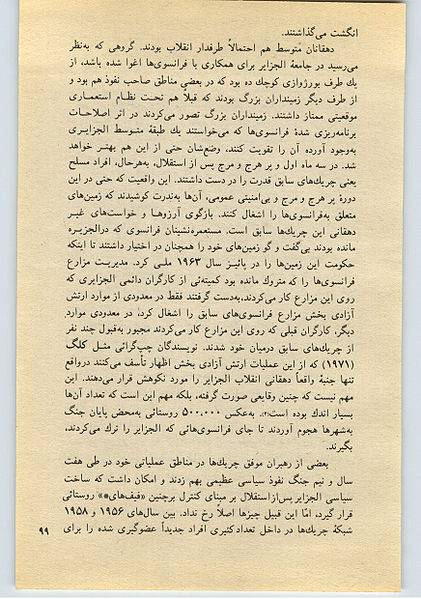 انگشت می‌گذاشتند.
دهقانان متوسط هم احتمالاً طرفدار انقلاب بودند. گروهی که به‌نظر
می‌رسید در جامعهٔ الجزایر برای همکاری با فرانسوی‌ها اغوا شده باشد، از
یك طرف بورژوازی کوچك ده بود که در بعضی مناطق صاحب نفوذ هم بود و
از طرف دیگر زمینداران بزرگ بودند که قبلاً هم تحت نظام استعماری
موقعیتی ممتاز داشتند. زمینداران بزرگ تصور می‌کردند در اثر اصلاحات
برنامه‌ریزی شدهٔ فرانسوی‌ها که می‌خواستند یك طبقهٔ متوسط الجزایری
به‌وجود آورده آن را تقویت کنند، وضع‌شان حتی از این هم بهتر خواهد
شد. در سه ماه اول و پر هرج و مرج پس از استقلال، به‌هرحال، افراد مسلح
یعنی چریك‌های سابق قدرت را در دست داشتند. این واقعیت که حتی در این
دورهٔ پر هرج و مرج و بی‌امنیتی عمومی، آن‌ها به‌ندرت کوشیدند که زمین‌های
متعلق به‌فرانسوی‌ها را اشغال کنند. بازگوی آرزوها و خواست‌های غیر
دهقانی این چریك‌های سابق است. مستعمره‌نشینان فرانسوی که درالجزیره
مانده بودند بی‌گفت و گو زمین‌های خود را همچنان در اختیار داشتند تا اینکه
حکومت این زمین‌ها را در پائیز سال ۱۹۶۳ ملی کرد. مدیریت مزارع
فرانسوی‌ها را که متروك مانده بود کمیته‌ئی از کارگران دائمی الجزایری که
روی این مزارع کار می‌کردند،به‌دست گرفتند فقط در معدودی از موارد ارتش
آزادی بخش مزارع فرانسوی‌های سابق را اشغال کرد، در معدودی موارد
دیگر، کارگران قبلی که روی این مزارع کار می‌کردند مجبور به‌قبول چند نفر
از چریك‌های سابق درمیان خود شدند. نویسندگان چپ‌گرائی مثل کلگ
(۱۹۷۱) که از این عملیات ارتش آزادی بخش اظهار تأسف می‌کنند درواقع
تنها جنبهٔ واقعاً دهقانی انقلاب الجزایر را مورد نکوهش قرار می‌دهند. این
مهم نیست که چنین وقایعی صورت گرفته، بلکه مهم این است که تعداد آن‌ها
بسیار اندك بوده است». به‌عکس ۵۰۰،۰۰۰ روستائی به‌محض پایان جنگ
به‌شهرها هجوم آوردند تا جای فرانسوی‌هائی که الجزایر را ترك می‌کردند،
بگیرند.
بعضی از رهبران موفق چریك‌ها در مناطق عملیاتی خود در طی هفت
سال و نیم جنگ نفوذ سیاسی عظیمی بهم زدند و امکان داشت که ساخت
سیاسی الجزایر پس‌ازاستقلال بر مبنای کنترل برچنین «فیف‌های*» روستائی
قرار گیرد. امّا این قبیل چیزها اصلاً رخ نداد. بین سال‌های ۱۹۵۶ و ۱۹۵۸
شبکهٔ چریك‌ها در داخل تعدادکثیری افراد جدیداً عضوگیری شده را برای
۹۹